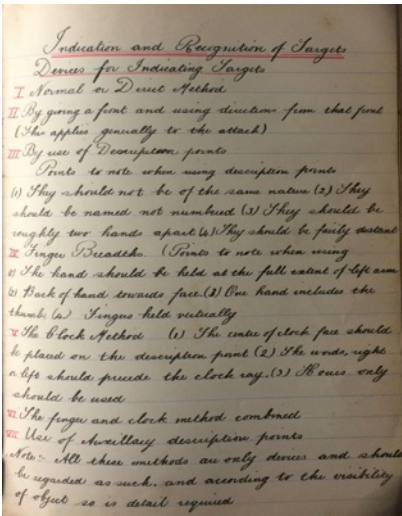 Indication and Recognition of Targets
Devices for Indicating Targets
I Normal or Direct Method
II By giving a front and using directions from that front
(This applies generally to the attack)
III By use of Description points
Points to note when using description points
(1) They should not be of the same nature (2) They
should be named not numbered (3) They should be
roughly two hands apart (4) They should be fairly distant
IV Finger Breadths. (Points to note when using
(1) The hand should be held at the full extent of left arm
(2) Back of hand towards face. (3) One hand includes the
thumb. (4) Fingers held vertically
V The Clock Method (1) The centre of clock face should
be placed on the description point (2) The words, right
or left should precede the clock ray. (3) Hours only
should be used
VI The finger and clock method combined
VII Use of Auxillary description points
Note:- All these methods are only devices and should
be regarded as such, and according to the visibility
of object so is detail required